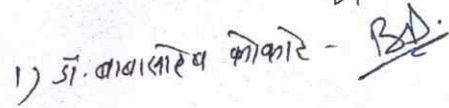 1) डॉ. बाबासाहेब कोकाटे -